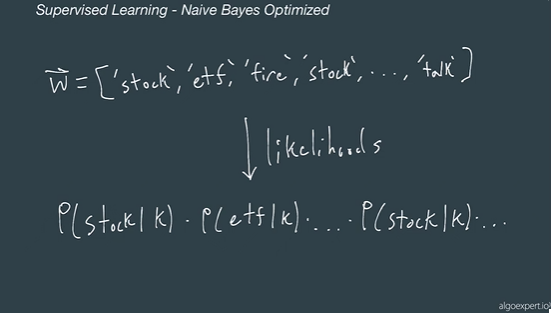 Supervised Learning - Naive Bayes Optimized
w⃗ = ['stock', 'etf', 'fire', 'stock', ..., 'talk']
likelihoods
P(stock|k) · P(etf|k) · ... · P(stock|k) · ...
algoexpert.io